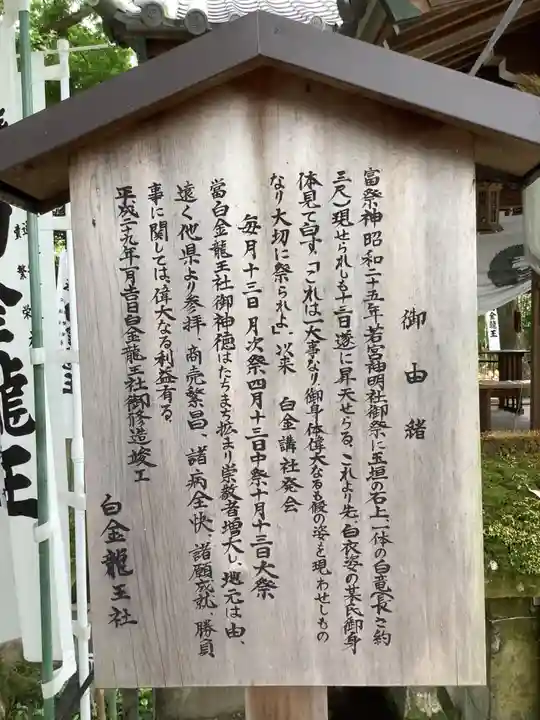 御由緒
富祭神昭和二十五年若宮神明社御祭に玉垣の石上、一体の白竜(長さ約
三尺)現せられしも十三日遂に昇天せらる、これより先、白衣姿の某氏御身
体見て白す、「これは一大事なり御身体偉大なるも仮の姿を現わせしもの
なり大切に祭られよ」以来　白金講社発会
毎月十三日月次祭四月十三日中祭十月十三日大祭
當白金龍王社御神徳はたちまち拡まり崇敬者増大し、地元は由、
遠く他県より参拝、商売繁昌、諸病全快、諸願成就、勝負
事に関しては、偉大なる利益有る、
平成二十九年一月吉日白金龍王社御修造竣工
白金龍王社
金龍王
金龍王